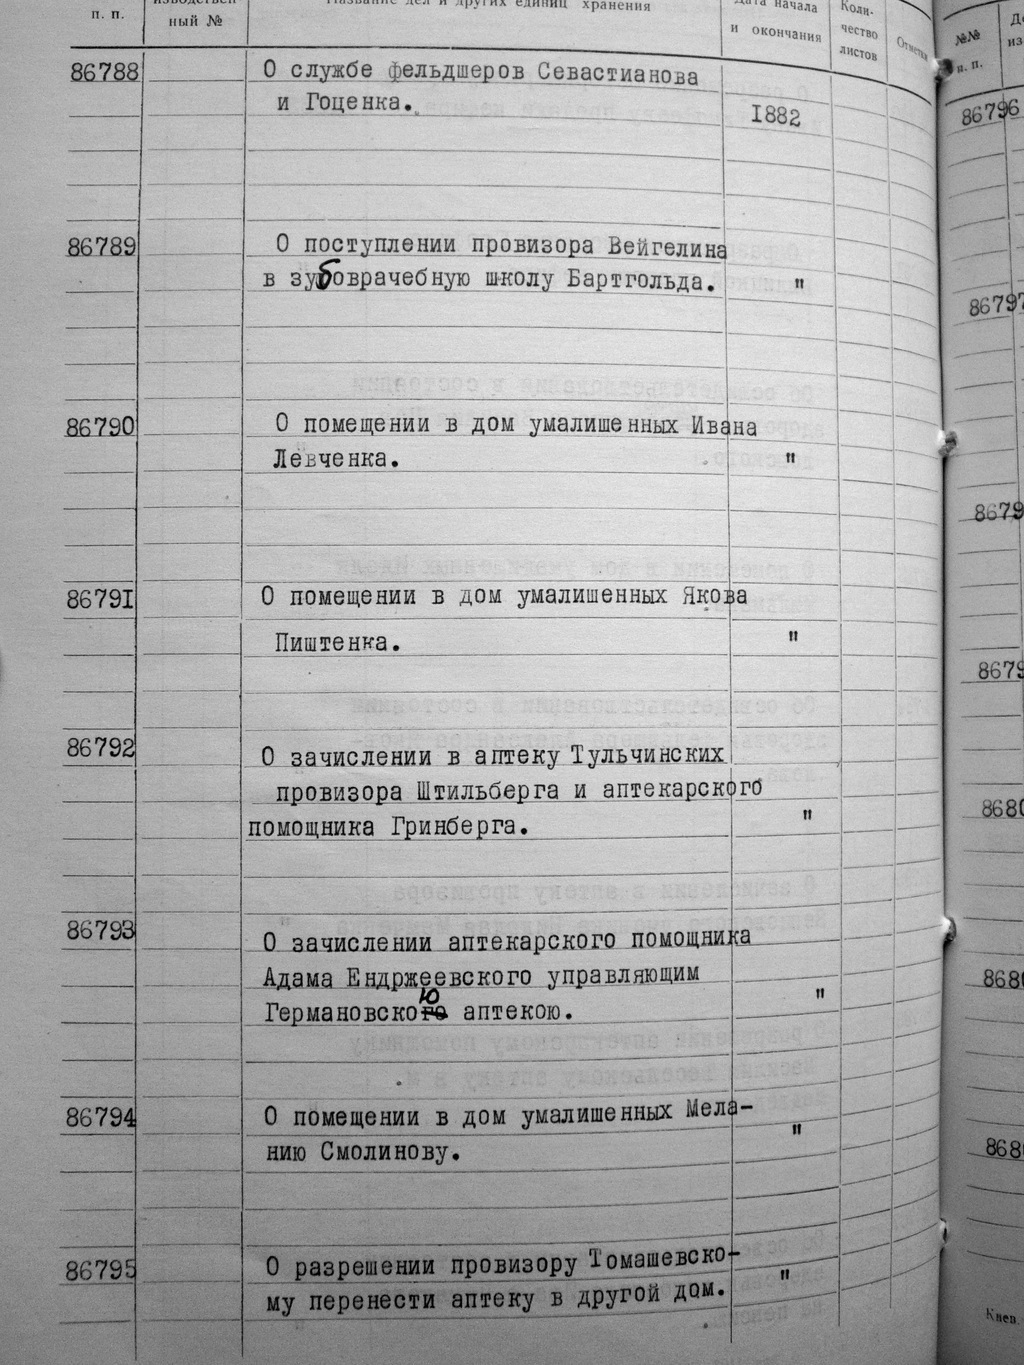 п. п.
ный №
Название дел и других единиц хранения
Дата начала
и окончания
Коли-
чество
листов
Отметки
86788
О службе фельдшеров Севастианова
и Гоценка.
1882
86789
О поступлении провизора Вейгелина
в зубоврачебную школу Бартгольда. "
86790
О помещении в дом умалишенных Ивана
Левченка. "
86791
О помещении в дом умалишенных Якова
Пиштенка. "
86792
О зачислении в аптеку Тульчинских
провизора Штильберга и аптекарского
помощника Гринберга. "
86793
О зачислении аптекарского помощника
Адама Ендржеевского управляющим
Германовскою аптекою. "
86794
О помещении в дом умалишенных Мела-
нию Смолинову. "
86795
О разрешении провизору Томашевско-
му перенести аптеку в другой дом. "
№№
п. п.
86796
86797
Киев.